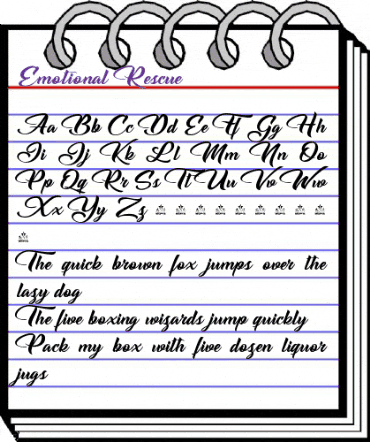 Emotional Rescue
Aa Bb Cc Dd Ee Ff Gg Hh
Ii Jj Kk Ll Mm Nn Oo
Pp Qq Rr Ss Tt Uu Vv Ww
Xx Yy Zz
The quick brown fox jumps over the
lazy dog
The five boxing wizards jump quickly
Pack my box with five dozen liquor
jugs